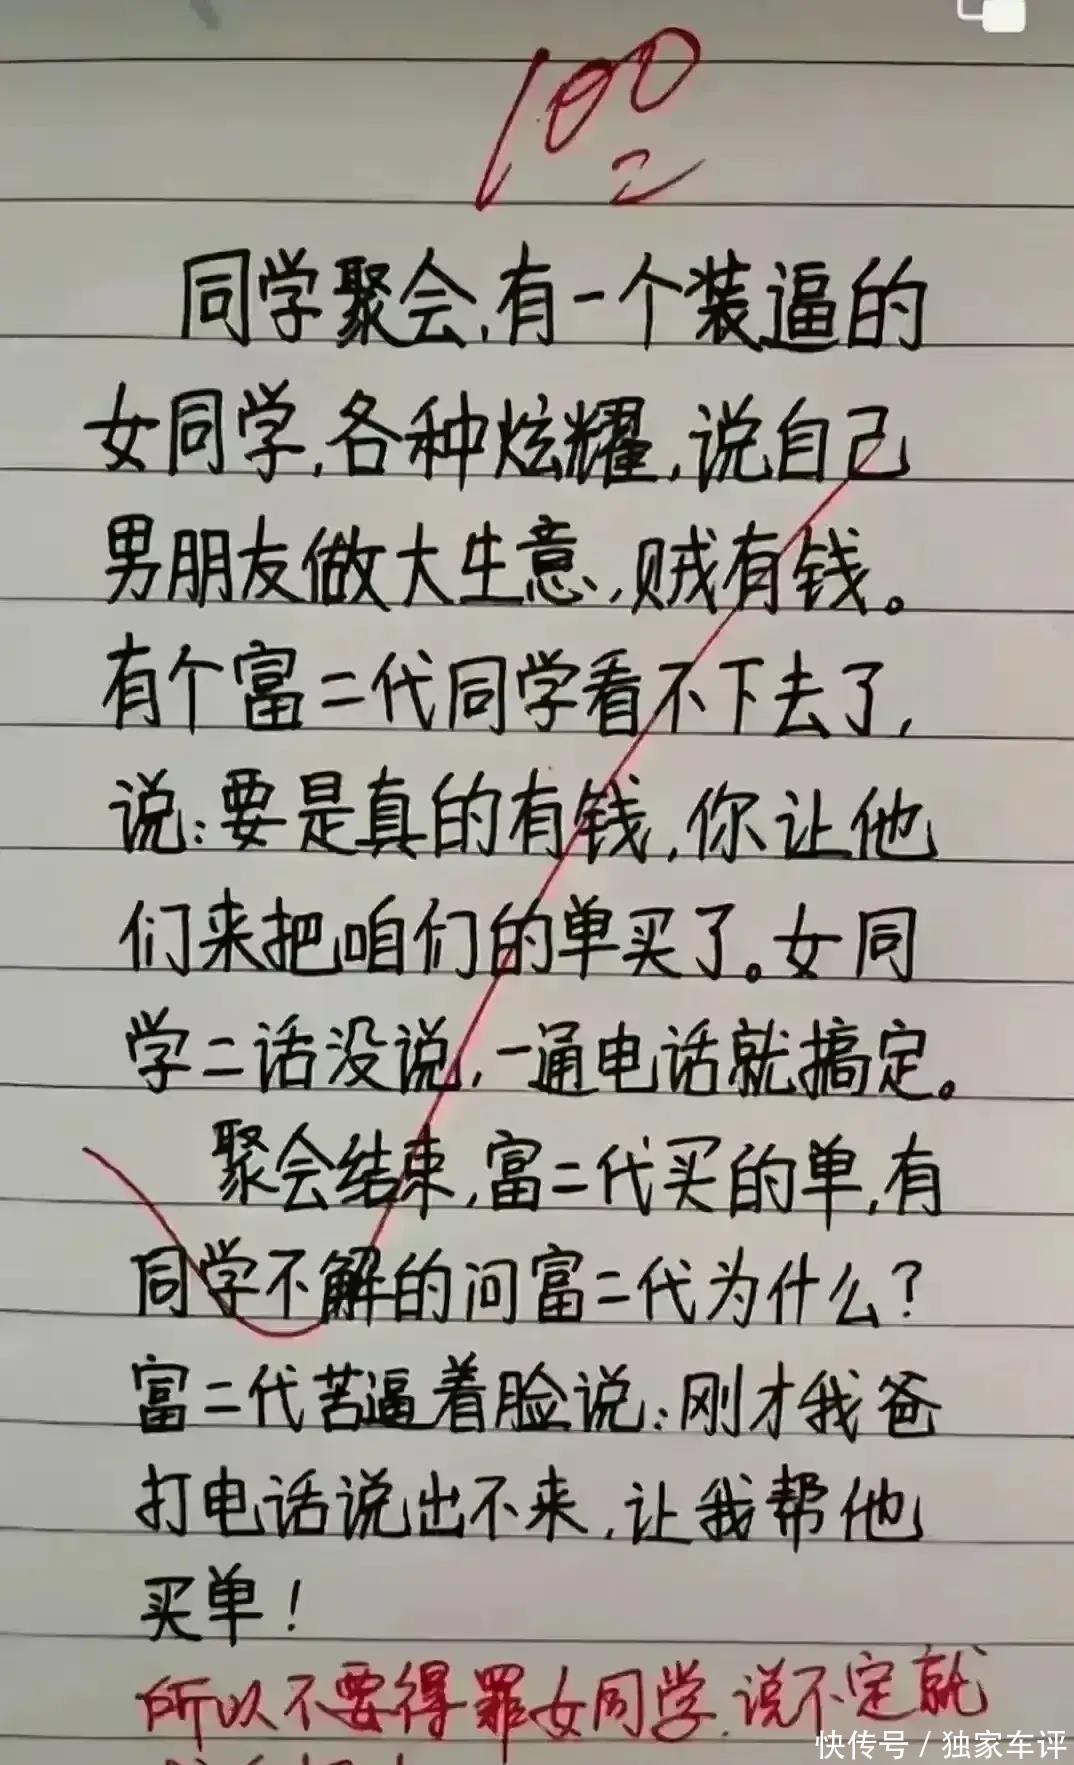 100
同学聚会,有一个装逼的
女同学,各种炫耀,说自己
男朋友做大生意,贼有钱。
有个富二代同学看不下去了,
说:要是真的有钱,你让他
们来把咱们的单买了。女同
学二话没说,一通电话就搞定。
聚会结束,富二代买的单,有
同学不解的问富二代为什么?
富二代苦逼着脸说:刚才我爸
打电话说出不来,让我帮他
买单!
所以不要得罪女同学,说不定就
快传号/独家车评